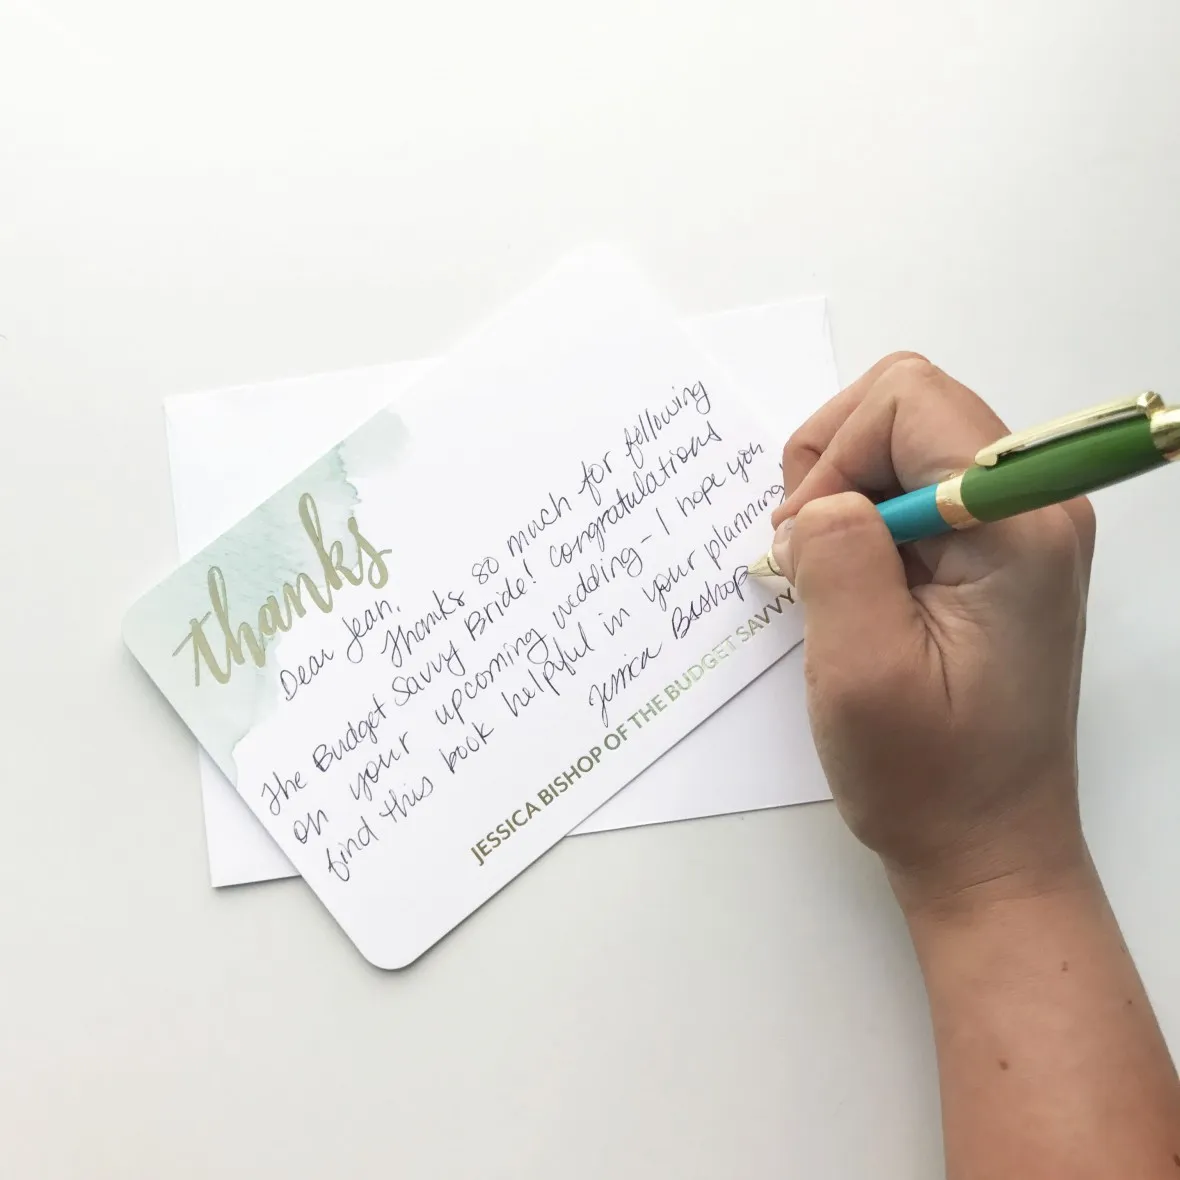 thanks
Dear Jean,
Thanks so much for following
The Budget Savvy Bride! Congratulations
on your upcoming wedding - I hope you
find this book helpful in your planning!
Jessica Bishop
JESSICA BISHOP OF THE BUDGET SAVVY